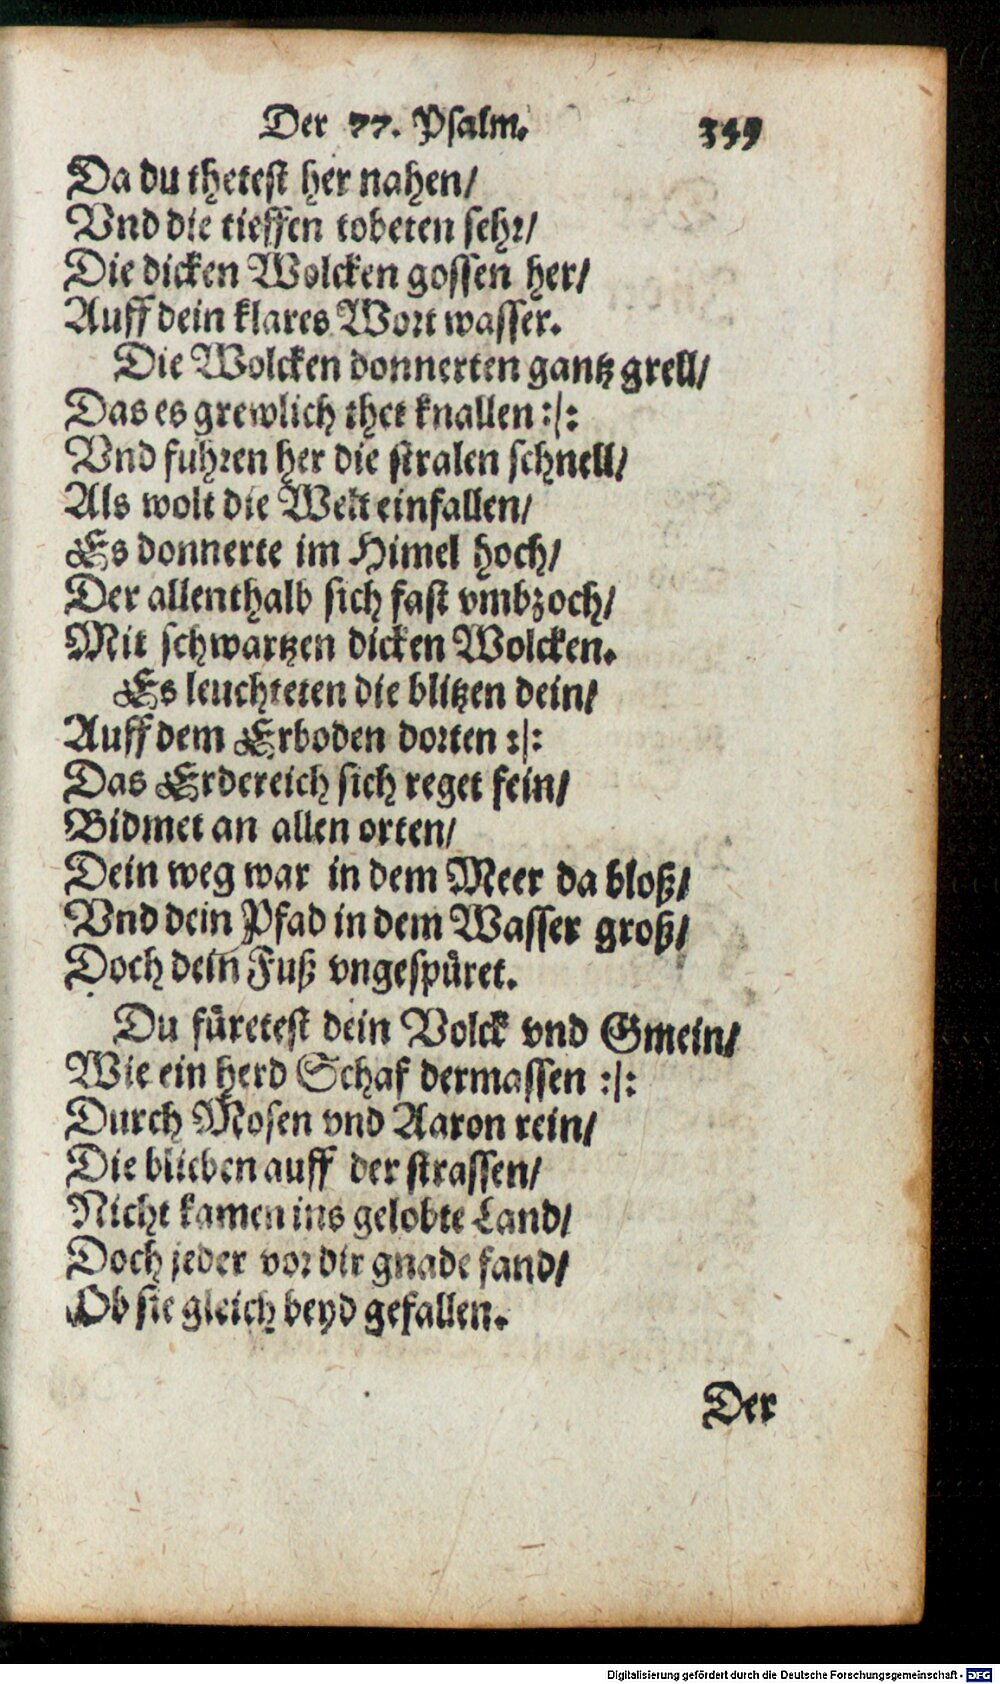 Der 77. Psalm. 359
Da du thetest her nahen/
Vnd die tieffen tobeten sehr/
Die dicken Wolcken gossen her/
Auff dein klares Wort wasser.
Die Wolcken donnerten gantz grell/
Das es grewlich thet knallen :/:
Vnd fuhren her die stralen schnell/
Als wolt die Welt einfallen/
Es donnerte im Himel hoch/
Der allenthalb sich fast vmbzoch/
Mit schwartzen dicken Wolcken.
Es leuchteten die blitzen dein/
Auff dem Erboden dorten :/:
Das Erdereich sich reget fein/
Bidmet an allen orten/
Dein weg war in dem Meer da bloß/
Vnd dein Pfad in dem Wasser groß/
Doch dein Fuß vngespüret.
Du füretest dein Volck vnd Gmein/
Wie ein herd Schaf dermassen :/:
Durch Mosen vnd Aaron rein/
Die blieben auff der strassen/
Nicht kamen ins gelobte Land/
Doch jeder vor dir gnade fand/
Ob sie gleich beyd gefallen.
Der
Digitalisierung gefördert durch die Deutsche Forschungsgemeinschaft - DFG